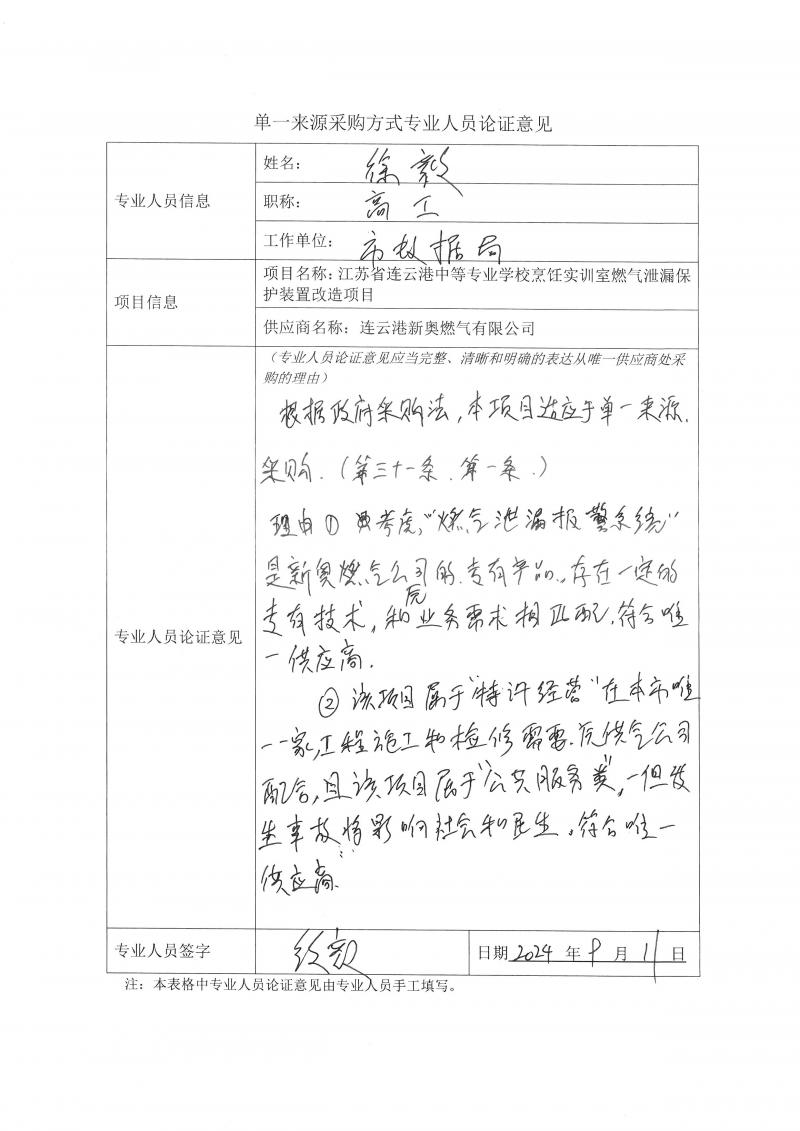 单一来源采购方式专业人员论证意见
专业人员信息
姓名: 徐毅
职称: 高工
工作单位: 市数据局
项目信息
项目名称:江苏省连云港中等专业学校烹饪实训室燃气泄漏保
护装置改造项目
供应商名称: 连云港新奥燃气有限公司
专业人员论证意见
(专业人员论证意见应当完整、清晰和明确的表达从唯一供应商处采
购的理由)
根据政府采购法,本项目适应于单一来源.
采购.(第三十一条.第一条.)
理由① 考虑,“燃气泄漏报警系统”
是新奥燃气公司的.专有产品.,存在一定的
专有技术,和业务需求相匹配.符合唯
一供应商.
② 该项目属于“特许经营”在本市唯
一一家,工程施工和检修需要.供气公司
配合,且该项目属于“公共服务类”,一但发
生事故将影响社会和民生.符合唯一
供应商.
专业人员签字
徐毅
日期 2024 年 9 月 11 日
注: 本表格中专业人员论证意见由专业人员手工填写。